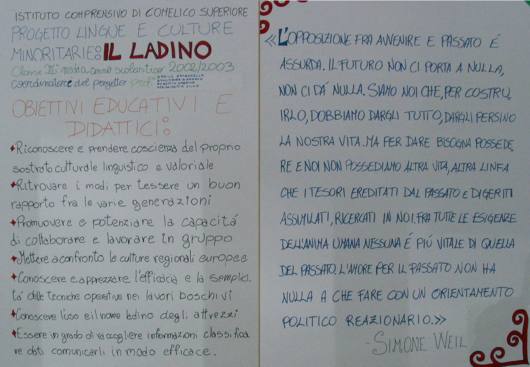 ISTITUTO COMPRENSIVO DI COMELICO SUPERIORE
PROGETTO LINGUE E CULTURE
MINORITARIE: IL LADINO
Classe III media, anno scolastico 2002/2003
Coordinatore del progetto prof.
OBIETTIVI EDUCATIVI E
DIDATTICI:
Riconoscere e prendere coscienza del proprio
sostrato culturale linguistico e valoriale
Ritrovare i modi per tessere un buon
rapporto fra le varie generazioni
Promuovere e potenziare la capacità
di collaborare e lavorare in gruppo
Mettere a confronto le culture regionali europee
Conoscere e apprezzare l'efficacia e la semplici
tá delle tecniche operative nei lavori boschivi
Conoscere l'uso e il nome ladino degli attrezzi
Essere in grado di raccogliere informazioni classifica
re dati comunicarli in modo efficace.
«L'OPPOSIZIONE FRA AVVENIRE E PASSATO É
ASSURDA. IL FUTURO NON CI PORTA A NULLA,
NON CI DA' NULLA. SIAMO NOI CHE, PER COSTRU,
IRLO, DOBBIAMO DARGLI TUTTO, DARGLI PERSINO
LA NOSTRA VITA. MA PER DARE BISOGNA POSSEDE,
RE E NOI NON POSSEDIAMO ALTRA VITA, ALTRA LINFA
CHE I TESORI EREDITATI DAL PASSATO E DIGERITI
ASSIMILATI, RICERCATI IN NOI. FRA TUTTE LE ESIGENZE
DELL'ANIMA UMANA NESSUNA É PIÚ VITALE DI QUELLA
DEL PASSATO. L'AMORE PER IL PASSATO NON HA
NULLA A CHE FARE CON UN ORIENTAMENTO
POLITICO REAZIONARIO.»
-SIMONE WEIL